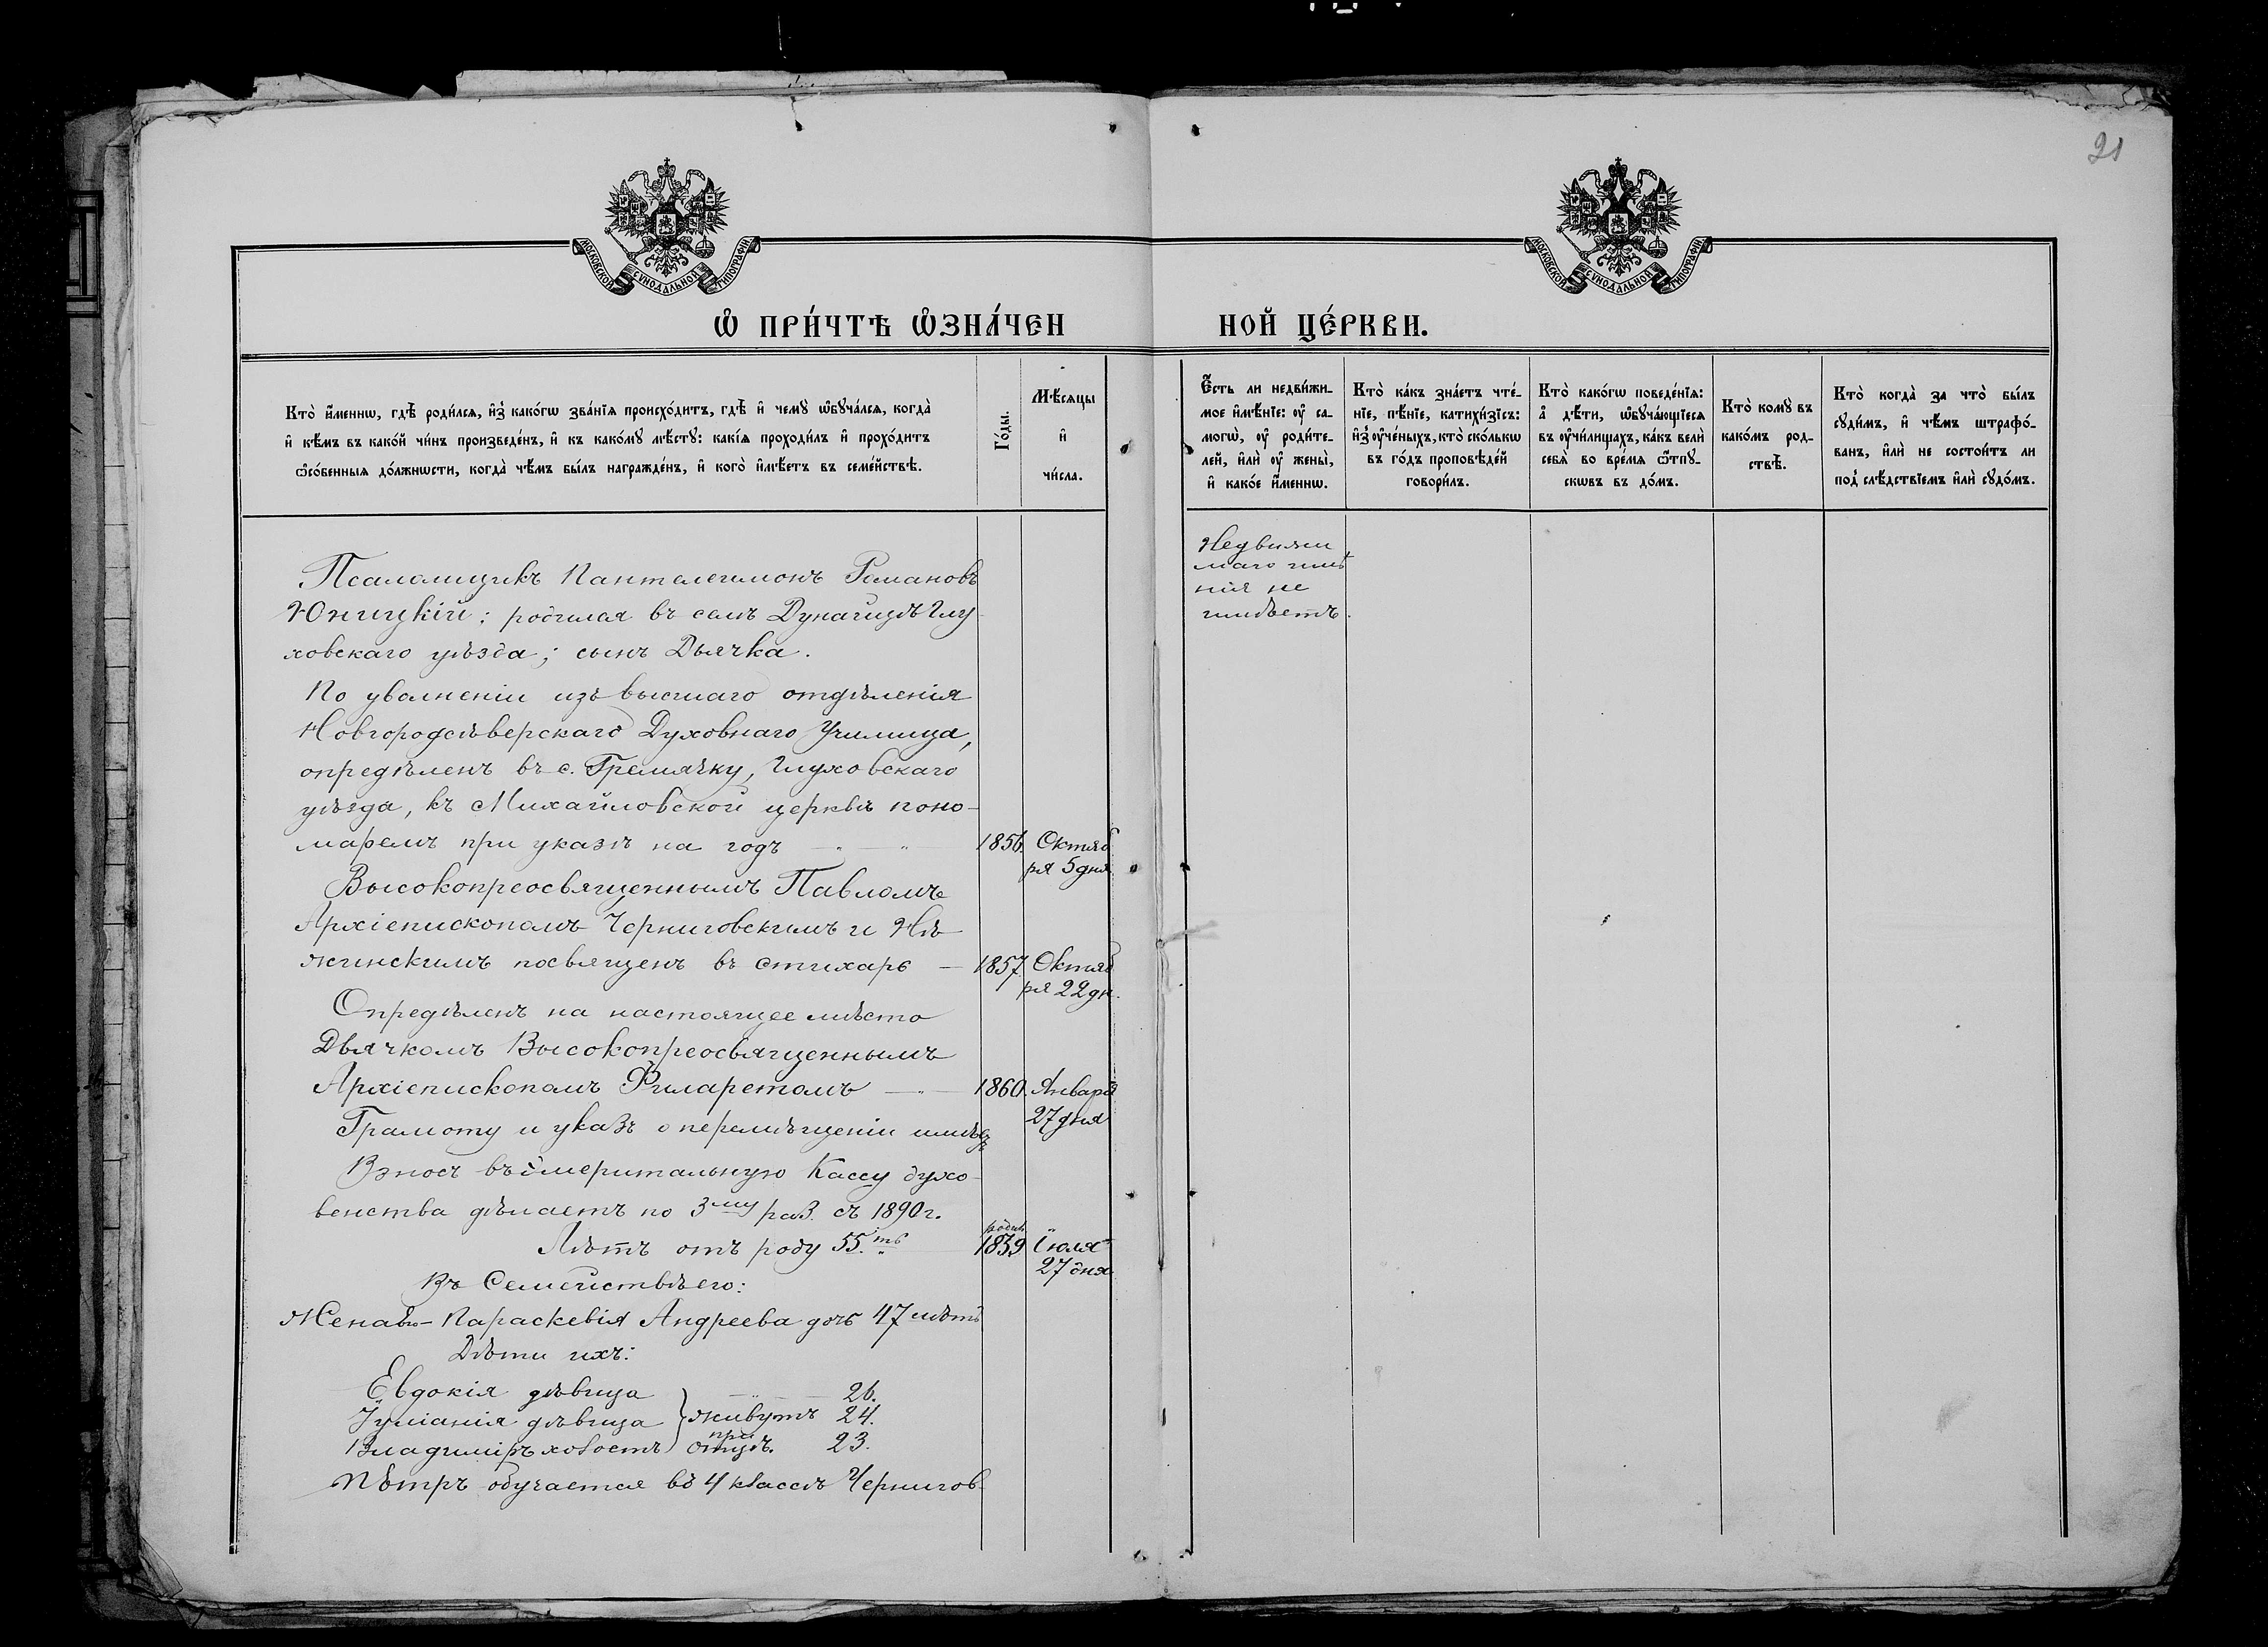 21
МОСКОВСКОЙ СѴНОДАЛЬНОЙ ТИПОГРАФІИ
МОСКОВСКОЙ СѴНОДАЛЬНОЙ ТИПОГРАФІИ
Ѡ҆ ПРИ́ЧТѢ Ѡ҆ЗНА́ЧЕН
НОЙ ЦЕ́РКВИ.
Кто̀ и҆́меннѡ, гдѣ̀ роди́лсѧ, и҆з̾ како́гѡ зва́нїѧ происхо́дитъ, гдѣ̀ и҆ чемꙋ̀ ѡ҆бꙋча́лсѧ, когда̀
и҆ кѣ́мъ въ како́й чи́нъ произведе́нъ, и҆ къ како́мꙋ мѣ́стꙋ: какі́ѧ проходи́лъ и҆ прохо́дитъ
ѡ҆со́бенныѧ до́лжнѡсти, когда̀ чѣ́мъ бы́лъ награжде́нъ, и҆ кого̀ и҆мѣ́етъ въ семе́йствѣ.
Го́ды.
Мѣ́сѧцы
и҆
чи́сла.
Е҆́сть ли недви́жи-
мое и҆мѣ́нїе: ᲂу҆ са-
могѡ̀, ᲂу҆ роди́те-
лей, и҆лѝ ᲂу҆ жены̀,
и҆ како́е и҆́меннѡ.
Кто̀ ка́къ зна́етъ чте́-
нїе, пѣ́нїе, катихи́зїсъ:
и҆з̾ ᲂу҆че́ныхъ, кто̀ ско́лькѡ
въ го́дъ проповѣ́дей
говори́лъ.
Кто̀ како́гѡ поведе́нїѧ:
а҆ дѣ́ти, ѡ҆бꙋча́ющїесѧ
въ ᲂу҆чи́лищахъ, ка́къ велѝ
себѧ̀ во вре́мѧ ѿпꙋ-
скѡвъ въ до́мъ.
Кто̀ комꙋ̀ въ
како́мъ род-
ствѣ̀.
Кто̀ когда̀ за что̀ бы́лъ
сꙋди́мъ, и҆ чѣ́мъ штрафо́-
ванъ, и҆лѝ не состои́тъ ли
под̾ слѣ́дствїемъ и҆лѝ сꙋдо́мъ.
Псаломщикъ Пантелеимонъ Романовъ
Юницкій; родился въ селѣ Дунайцѣ Глу
ховскаго уѣзда; сынъ Дьячка.
По уволненіи изъ высшаго отдѣленія
Новгородсѣверскаго Духовнаго Училища,
опредѣленъ въ с. Гремячку, Глуховскаго
уѣзда, къ Михайловской церквѣ поно-
маремъ при указѣ на годъ — " — "
1856 Октяб
ря 5 дня
Высокопреосвященнымъ Павломъ
Архіепископомъ Черниговскимъ и Нѣ
жинскимъ посвященъ въ стихарь — 1857 Октяб
ря 22 дн.
Опредѣленъ на настоящее мѣсто
Дьячкомъ Высокопреосвященнымъ
Архіепископомъ Филаретомъ — 1860. Января
27 дня
Грамоту и указъ о перемѣщеніи имѣетъ
Взносъ въ эмеритальную Кассу духо-
венства дѣлаетъ по 3му раз. съ 1890 г.
Лѣтъ отъ роду 55.ть
родил.
1839 Іюля
27 дня
Въ Семействѣ его:
Жена Параскевія Андреева дочь 47 лѣтъ
Дѣти ихъ:
Евдокія дѣвица — " — 26.
Іуліанія дѣвица } живутъ 24.
Владиміръ холостъ при отцѣ. 23.
Пѣтръ обучается въ 4 классѣ Чернигов-
Недвижи
маго имѣ
нія не
имѣетъ.